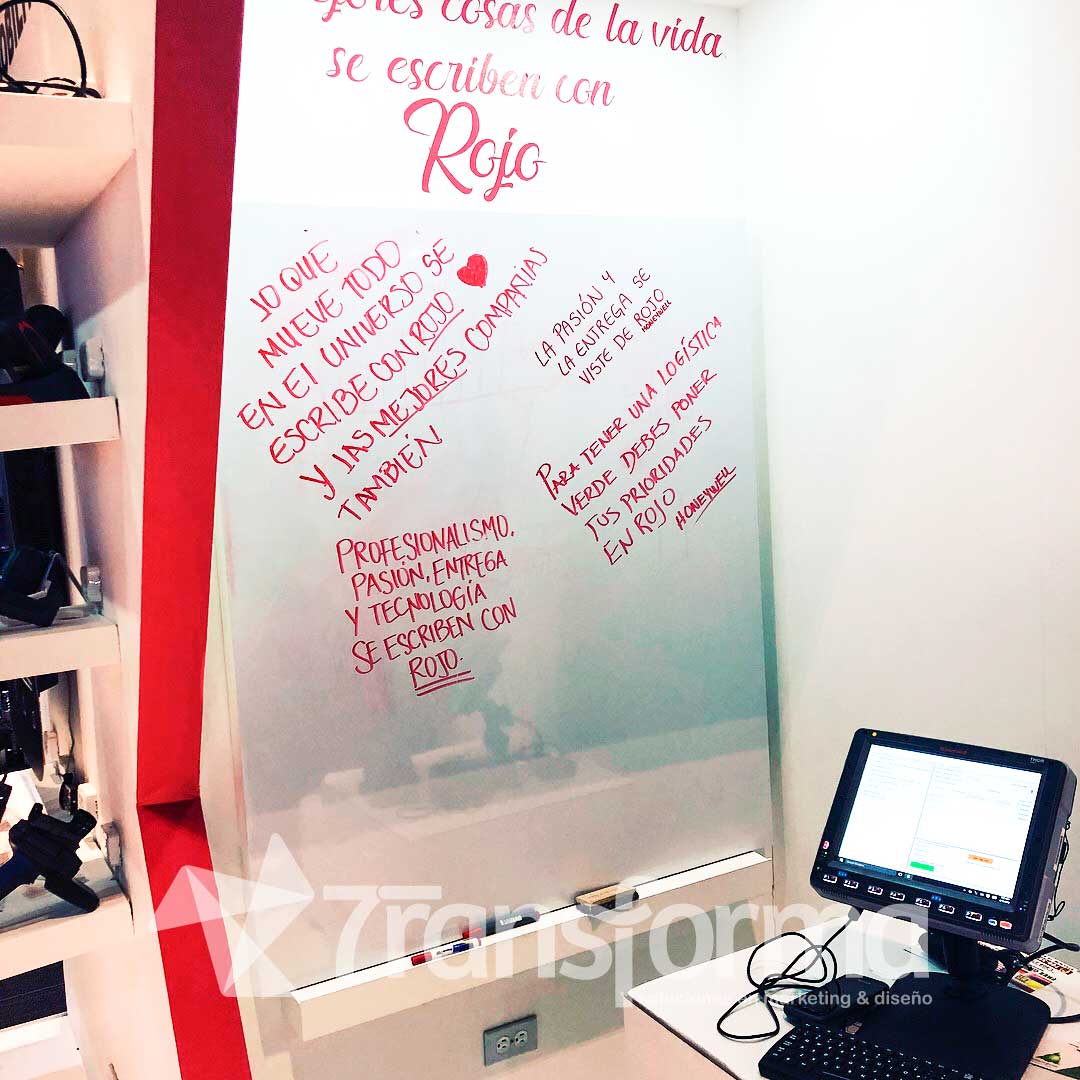 cosas de la vida
se escriben con
Rojo
LO QUE
MUEVE TODO
EN El UNIVERSO SE
ESCRIBE CON ROJO
Y lAS MEJORES COMPAÑIAS
TAMBIÉN
LA PASIÓN Y
LA ENTREGA SE
VISTE DE ROJO
HONEYWELL
PARA TENER UNA LOGÍSTICA
VERDE DEBES PONER
TUS PRIORIDADES
EN ROJO
HONEYWELL
PROFESIONALISMO,
PASIÓN, ENTREGA
Y TECNOLOGÍA
SE ESCRIBEN CON
ROJO.
THOR
7ransforma
marketing & diseño